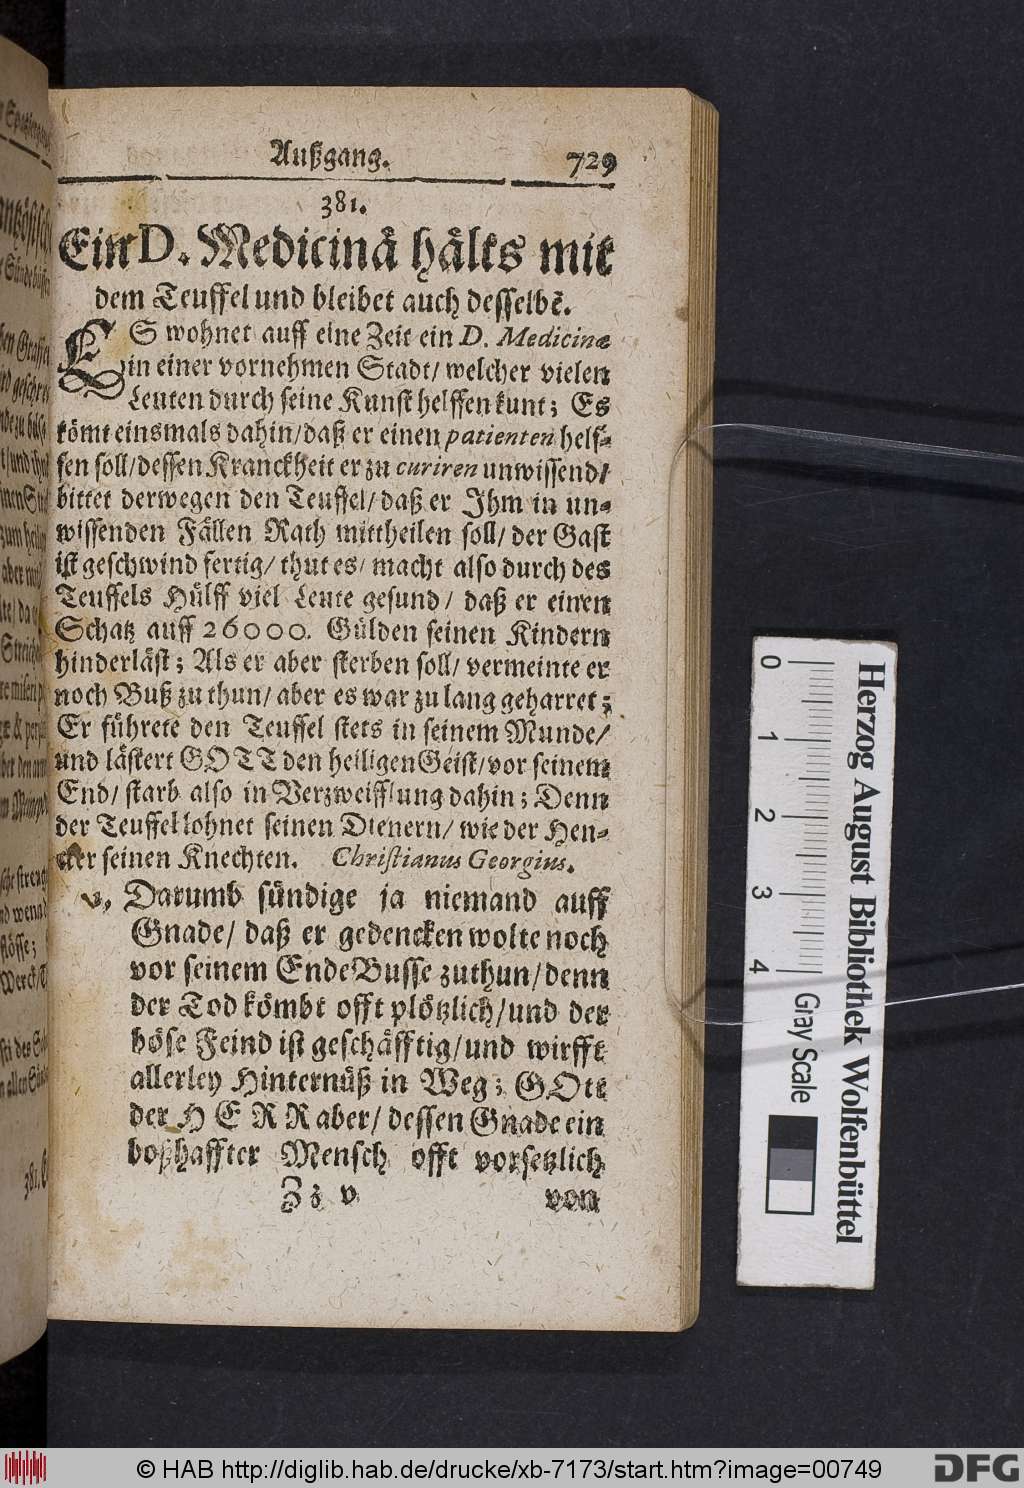 Außgang. 729
381.
Ein D. Medicinå hålts mit
dem Teuffel und bleibet auch desselbē.
ES wohnet auff eine Zeit ein D. Medicinæ
in einer vornehmen Stadt/ welcher vielen
Leuten durch seine Kunst helffen kunt; Es
kömt einsmals dahin/ daß er einen patienten helf-
fen soll/ dessen Kranckheit er zu curiren unwissend/
bittet derwegen den Teuffel/ daß er Ihm in un-
wissenden Fällen Rath mittheilen soll/ der Gast
ist geschwind fertig/ thut es/ macht also durch des
Teuffels Hülff viel Leute gesund/ daß er einen
Schatz auff 26000. Gülden seinen Kindern
hinderläst; Als er aber sterben soll/ vermeinte er
noch Buß zu thun/ aber es war zu lang geharret;
Er führete den Teuffel stets in seinem Munde/
und lästert GOTT den heiligen Geist/ vor seinem
End/ starb also in Verzweifflung dahin; Denn
der Teuffel lohnet seinen Dienern/ wie der Hen-
cker seinen Knechten. Christianus Georgius.
Darumb sündige ja niemand auff
Gnade/ daß er gedencken wolte noch
vor seinem Ende Busse zuthun/ denn
der Tod kömbt offt plötzlich/ und der
böse Feind ist geschäfftig/ und wirfft
allerley Hinternüß in Weg; GOtt
der HERR aber/ dessen Gnade ein
boßhaffter Mensch offt vorsetzlich
Zz v von
Herzog August Bibliothek Wolfenbüttel
0 1 2 3 4 Gray Scale
© HAB http://diglib.hab.de/drucke/xb-7173/start.htm?image=00749
DFG